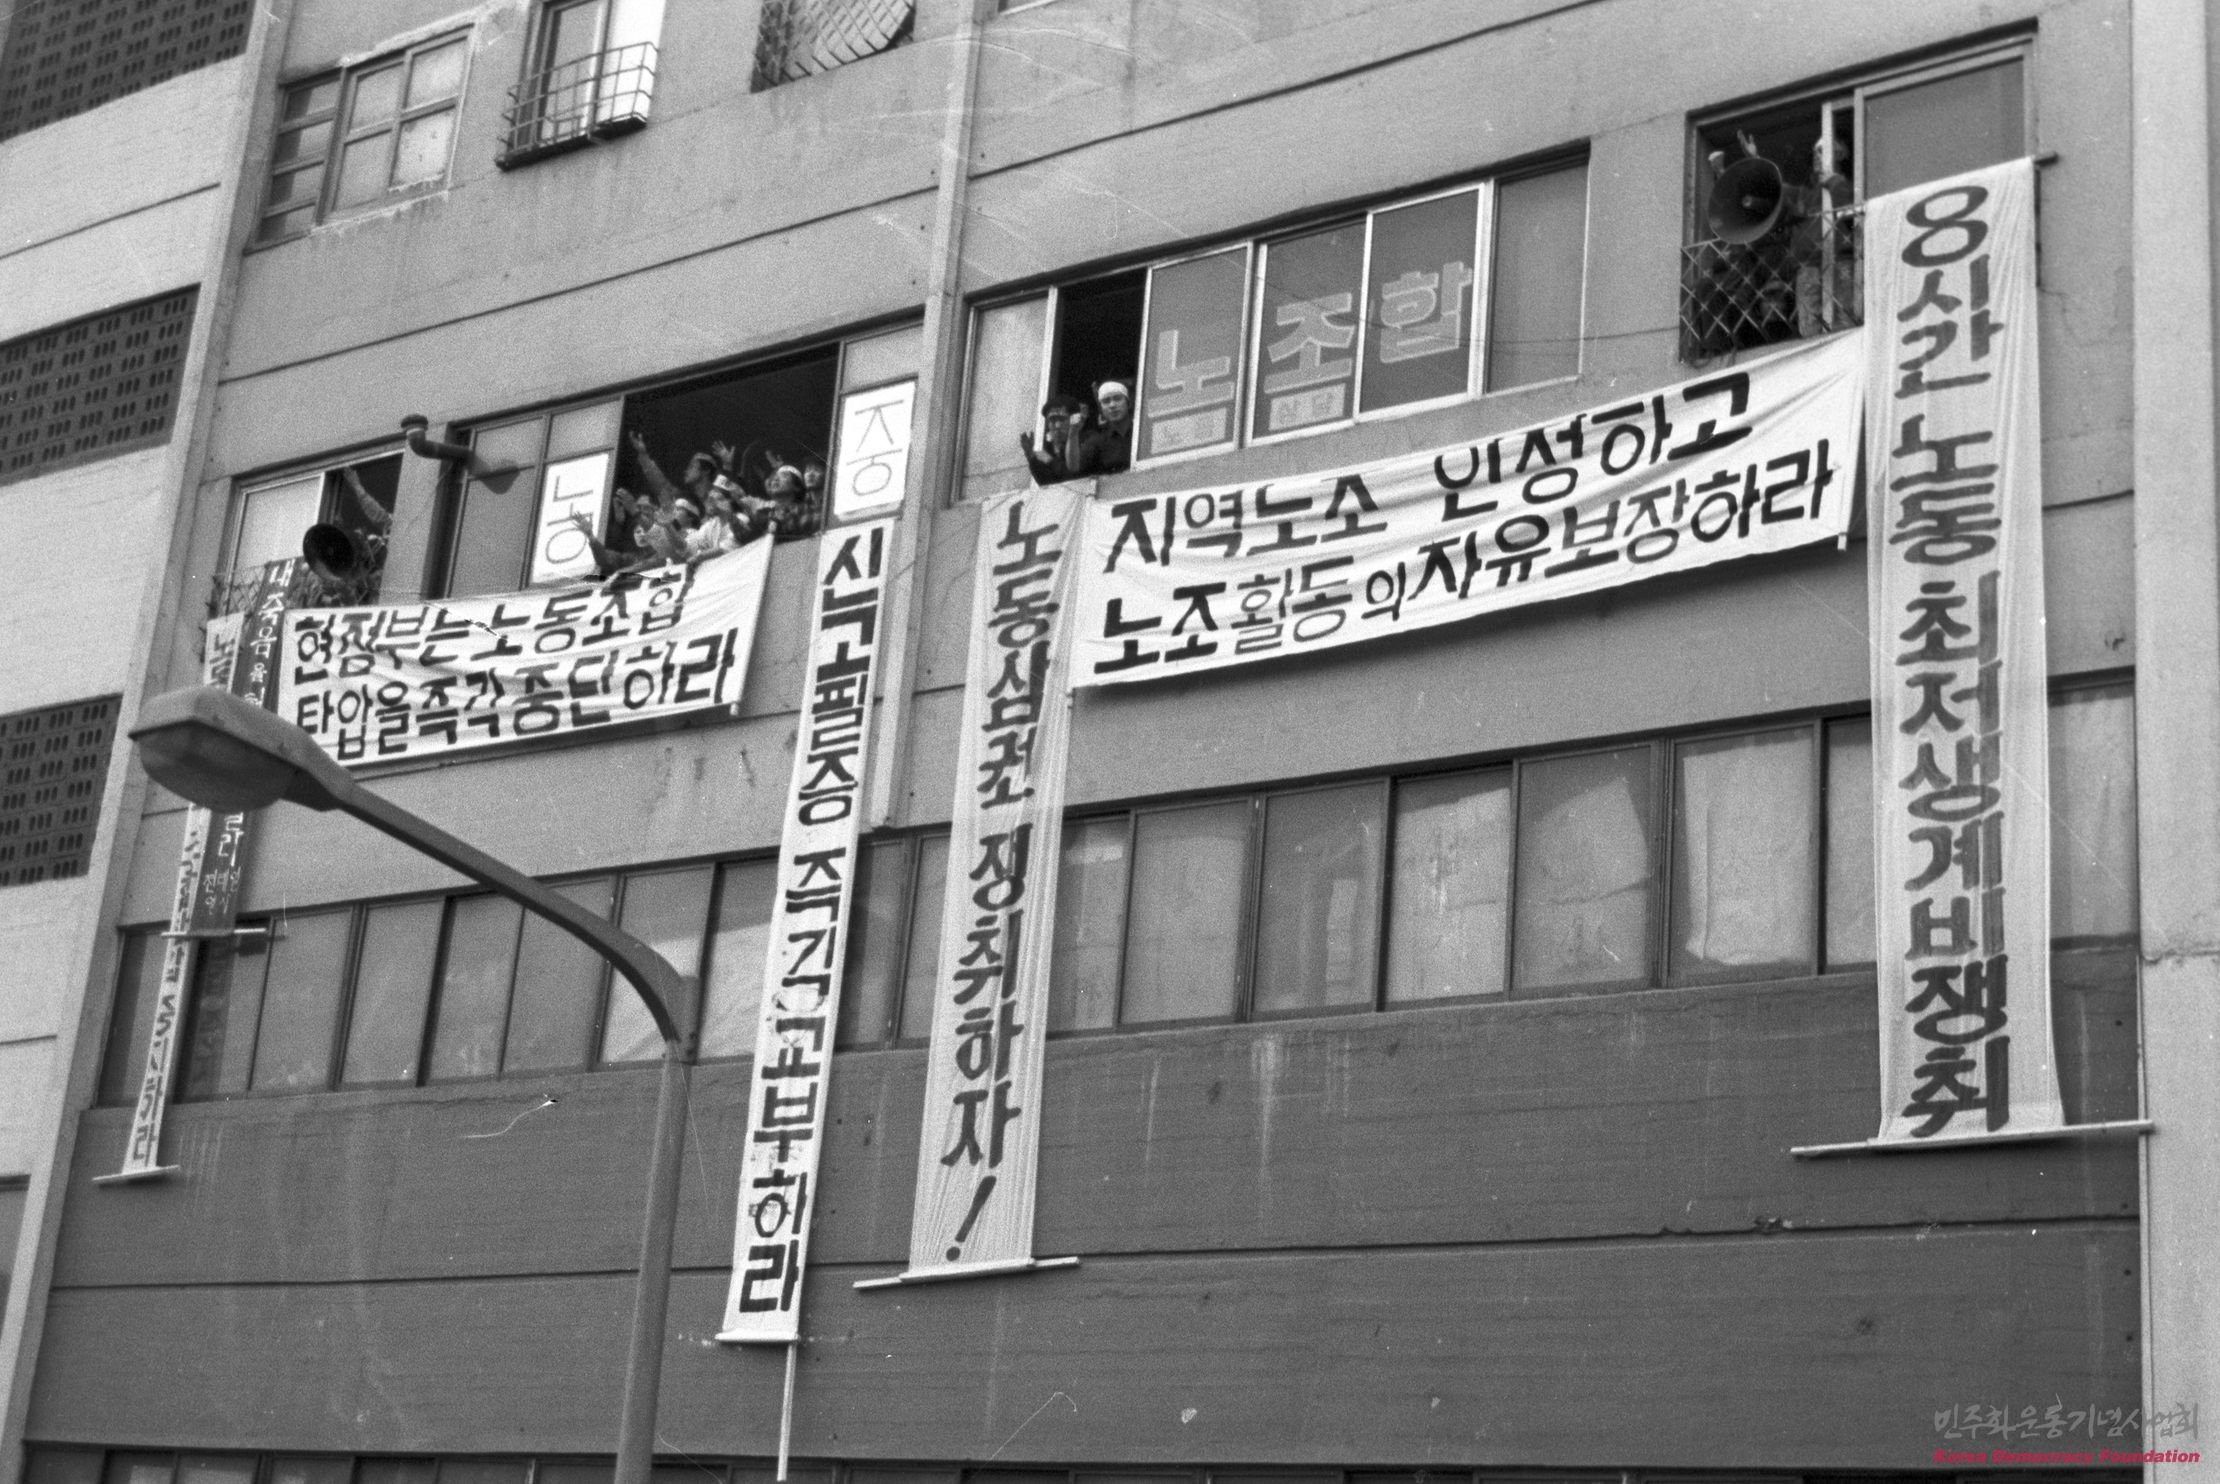 노조합
노동 상담
8시간 노동 최저생계비 쟁취
지역노조 인정하고
노조활동의 자유 보장하라
노동삼권 쟁취하자!
중
신고필증 즉각 교부하라
농
현정부는 노동조합
탄압을 즉각 중단하라
내 죽음을
민주화운동기념사업회
Korea Democracy Foundation